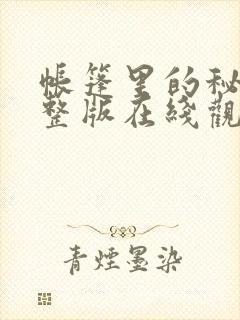 帳篷里的秘
整版在綫觀
青煙墨染